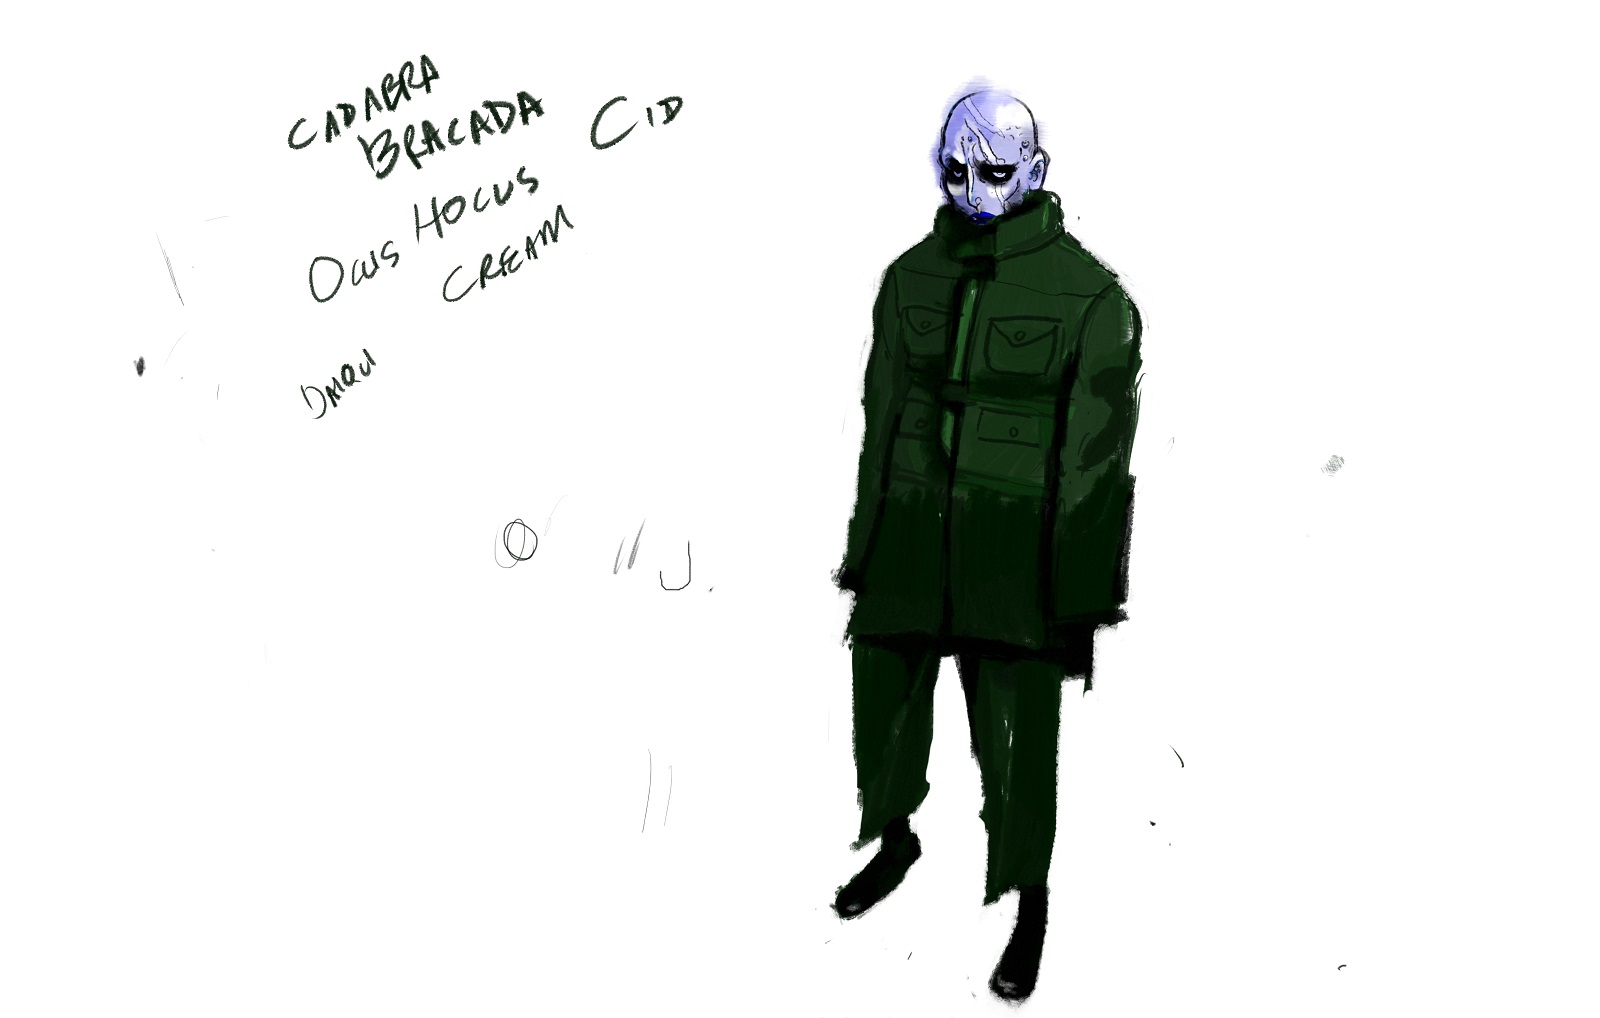 CADABRA
BRACADA
CID
OCUS HOCUS
CREAM